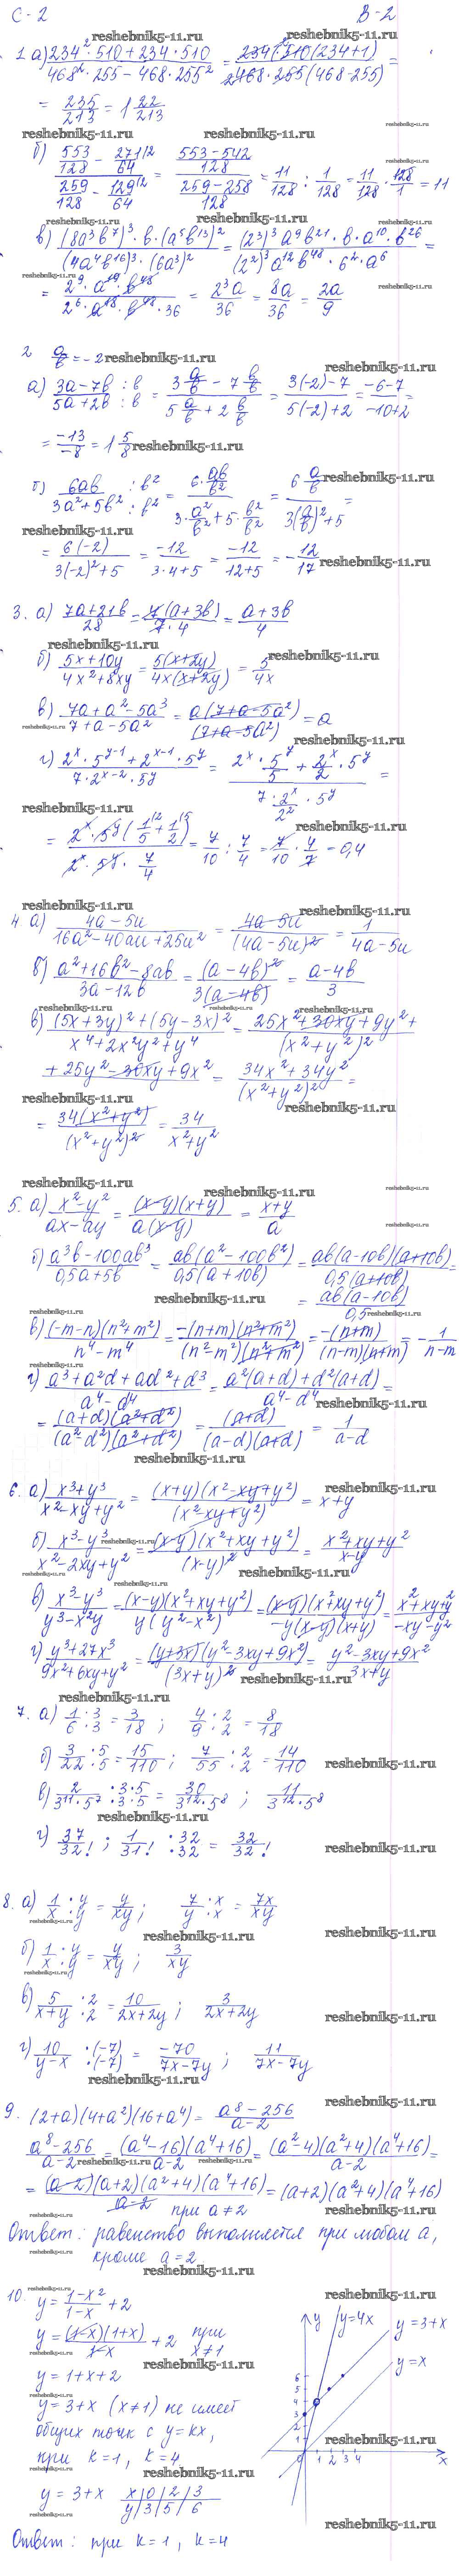 С-2 В-2
reshebnik5-11.ru reshebnik5-11.ru
1. а) (234²·510+234·510)/(468²·255-468·255²) = (234·510(234+1))/(468·255(468-255)) =
= 235/213 = 1 22/213
reshebnik5-11.ru reshebnik5-11.ru
б) (553/128 - 271/64)/(259/128 - 129/64) = ((553-542)/128)/((259-258)/128) = 11/128 : 1/128 = 11/128 · 128/1 = 11
reshebnik5-11.ru
в) ((8a³b⁷)³·b·(a⁵b¹³)²)/((4a⁴b¹⁶)³·(6a³)²) = ((2³)³a⁹b²¹·b·a¹⁰·b²⁶)/((2²)³a¹²b⁴⁸·6²·a⁶) =
= (2⁹·a¹⁹·b⁴⁸)/(2⁶·a¹⁸·b⁴⁸·36) = 2³a/36 = 8a/36 = 2a/9
2 a/b = -2 reshebnik5-11.ru
а) (3a-7b)/(5a+2b) :b/:b = (3 a/b - 7 b/b)/(5 a/b + 2 b/b) = (3(-2)-7)/(5(-2)+2) = (-6-7)/(-10+2) =
= -13/-8 = 1 5/8 reshebnik5-11.ru
б) 6ab/(3a²+5b²) :b²/:b² = (6·ab/b²)/(3·a²/b²+5·b²/b²) = (6 a/b)/(3(a/b)²+5) =
= 6(-2)/(3(-2)²+5) = -12/(3·4+5) = -12/(12+5) = -12/17
reshebnik5-11.ru
3. а) (7a+21b)/28 = 7(a+3b)/(7·4) = (a+3b)/4
reshebnik5-11.ru
б) (5x+10y)/(4x²+8xy) = 5(x+2y)/(4x(x+2y)) = 5/4x
в) (7a+a²-5a³)/(7+a-5a²) = a(7+a-5a²)/(7+a-5a²) = a
reshebnik5-11.ru
г) (2ˣ·5ʸ⁻¹+2ˣ⁻¹·5ʸ)/(7·2ˣ⁻²·5ʸ) = (2ˣ·5ʸ/5 + 2ˣ/2·5ʸ)/(7·2ˣ/2²·5ʸ) =
reshebnik5-11.ru
= (2ˣ·5ʸ(1/5+1/2))/(2ˣ·5ʸ·7/4) = 7/10 : 7/4 = 7/10 · 4/7 = 0,4
reshebnik5-11.ru
4. а) (4a-5u)/(16a²-40au+25u²) = (4a-5u)/(4a-5u)² = 1/(4a-5u)
б) (a²+16b²-8ab)/(3a-12b) = (a-4b)²/(3(a-4b)) = (a-4b)/3
в) ((5x+3y)²+(5y-3x)²)/(x⁴+2x²y²+y⁴) = (25x²+30xy+9y²+
+25y²-30xy+9x²)/(x²+y²)² = (34x²+34y²)/(x²+y²)² =
= 34(x²+y²)/(x²+y²)² = 34/(x²+y²)
reshebnik5-11.ru
5. а) (x²-y²)/(ax-ay) = (x-y)(x+y)/(a(x-y)) = (x+y)/a
б) (a³b-100ab³)/(0,5a+5b) = ab(a²-100b²)/(0,5(a+10b)) = ab(a-10b)(a+10b)/(0,5(a+10b)) =
= ab(a-10b)/0,5
в) (-m-n)(n²+m²)/(n⁴-m⁴) = -(n+m)(n²+m²)/((n²-m²)(n²+m²)) = -(n+m)/((n-m)(n+m)) = -1/(n-m)
г) (a³+a²d+ad²+d³)/(a⁴-d⁴) = (a²(a+d)+d²(a+d))/(a⁴-d⁴) =
= (a+d)(a²+d²)/((a²-d²)(a²+d²)) = (a+d)/((a-d)(a+d)) = 1/(a-d)
reshebnik5-11.ru
6. а) (x³+y³)/(x²-xy+y²) = (x+y)(x²-xy+y²)/(x²-xy+y²) = x+y
б) (x³-y³)/(x²-2xy+y²) = (x-y)(x²+xy+y²)/(x-y)² = (x²+xy+y²)/(x-y)
в) (x³-y³)/(y³-x²y) = (x-y)(x²+xy+y²)/(y(y²-x²)) = (x-y)(x²+xy+y²)/(-y(x-y)(x+y)) = (x²+xy+y²)/(-xy-y²)
г) (y³+27x³)/(9x²+6xy+y²) = (y+3x)(y²-3xy+9x²)/(3x+y)² = (y²-3xy+9x²)/(3x+y)
reshebnik5-11.ru
7. а) 1/6 ·3/·3 = 3/18 ; 4/9 ·2/·2 = 8/18
б) 3/22 ·5/·5 = 15/110 ; 7/55 ·2/·2 = 14/110
в) 2/(3¹¹·5⁷) ·3·5/·3·5 = 30/(3¹²·5⁸) ; 11/(3¹²·5⁸)
reshebnik5-11.ru
г) 37/32! ; 1/31! ·32/·32 = 32/32!
reshebnik5-11.ru
8. а) 1/x ·y/·y = y/xy ; 7/y ·x/·x = 7x/xy
б) 1/x ·y/·y = y/xy ; 3/xy
в) 5/(x+y) ·2/·2 = 10/(2x+2y) ; 3/(2x+2y)
г) 10/(y-x) ·(-7)/·(-7) = -70/(7x-7y) ; 11/(7x-7y)
reshebnik5-11.ru
9. (2+a)(4+a²)(16+a⁴) = (a⁸-256)/(a-2)
(a⁸-256)/(a-2) = (a⁴-16)(a⁴+16)/(a-2) = (a²-4)(a²+4)(a⁴+16)/(a-2) =
= (a-2)(a+2)(a²+4)(a⁴+16)/(a-2) = (a+2)(a²+4)(a⁴+16)
при a≠2
Ответ: равенство выполняется при любом a,
кроме a=2
reshebnik5-11.ru
10. y = (1-x²)/(1-x) + 2
y = (1-x)(1+x)/(1-x) + 2 при x≠1
y = 1+x+2
y = 3+x (x≠1) не имеет
общих точек с y=kx,
при k=1, k=4
y = 3+x x 0 2 3
y 3 5 6
y y=4x y=3+x
y=x
6
5
4
3
2
1
0 1 2 3 4 x
reshebnik5-11.ru
Ответ: при k=1, k=4